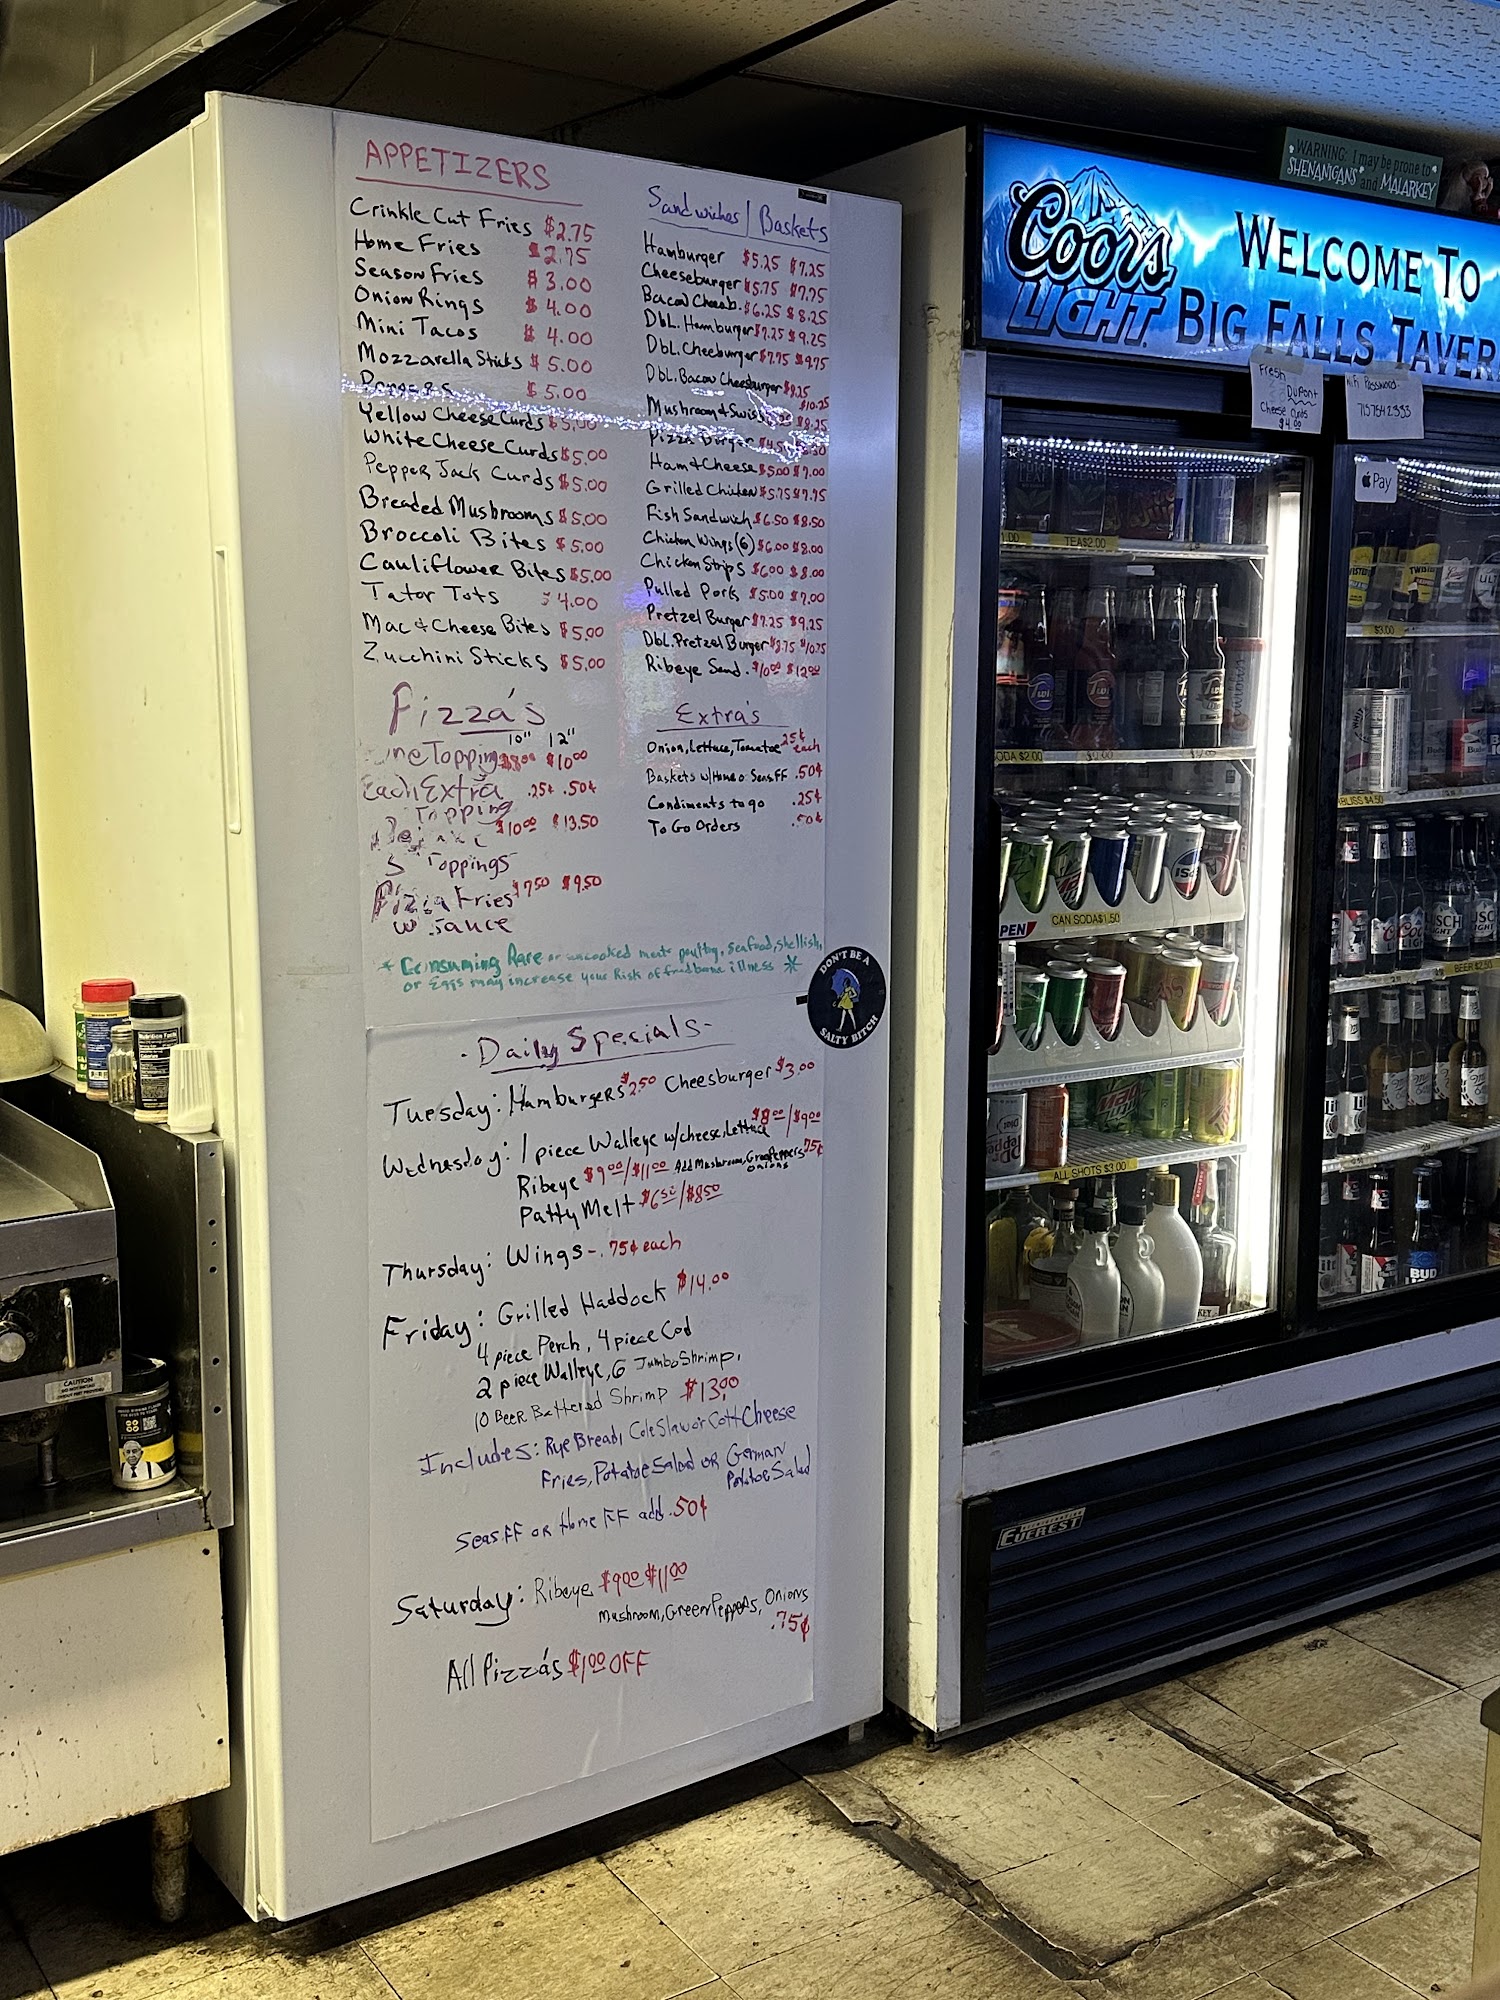 APPETIZERS
Crinkle Cut Fries $2.75
Home Fries $2.75
Season Fries $3.00
Onion Rings $4.00
Mini Tacos $4.00
Mozzarella Sticks $5.00
$5.00
Yellow Cheese Curds $5.00
White Cheese Curds $5.00
Pepper Jack Curds $5.00
Breaded Mushrooms $5.00
Broccoli Bites $5.00
Cauliflower Bites $5.00
Tator Tots $4.00
Mac & Cheese Bites $5.00
Zucchini Sticks $5.00
Pizza's
10" 12"
Topping $10.00
Each Extra .25¢ .50¢
Topping
$10.00 $13.50
5 Toppings
Pizza Fries $7.50 $9.50
w. Sauce
Sandwiches / Baskets
Hamburger $5.25 $7.25
Cheeseburger $5.75 $7.75
Bacon Cheeb. $6.25 $8.25
Dbl. Hamburger $7.25 $9.25
Dbl. Cheeburger $7.75 $9.75
Dbl. Bacon Cheesburger $8.25
$10.25
Mushroom & Swiss $8.25
Pizza Burger
Ham & Cheese $5.00 $7.00
Grilled Chicken $5.75 $7.75
Fish Sandwich $6.50 $8.50
Chicken Wings (6) $6.00 $8.00
Chicken Strips $6.00 $8.00
Pulled Pork $5.00 $7.00
Pretzel Burger $7.25 $9.25
Dbl. Pretzel Burger $8.75 $10.75
Ribeye Sand. $10.00 $12.00
Extra's
Onion, Lettuce, Tomatoe 25¢ each
Baskets w/Home o. Seas. FF .50¢
Condiments to go .25¢
To Go Orders .50¢
* Consuming Rare or uncooked meat poultry, Seafood, shellish,
or Eggs may increase your Risk of foodborne illness *
DON'T BE A
SALTY BITCH
- Daily Specials -
Tuesday: Hamburgers $2.50 Cheesburger $3.00
Wednesday: 1 piece Walleye w/cheese, Lettuce $8.00/$9.00
Ribeye $9.00/$11.00 Add Mushroom, Green Peppers, Onions 75¢
Patty Melt $6.50/$8.50
Thursday: Wings - .75¢ each
Friday: Grilled Haddock $14.00
4 piece Perch, 4 piece Cod
2 piece Walleye, 6 Jumbo Shrimp,
10 Beer Battered Shrimp $13.00
Includes: Rye Bread, Cole Slaw or Cott Cheese
Fries, Potatoe Salad or German
Potatoe Salad
Seas. FF or Home FF add .50¢
Saturday: Ribeye $9.00 $11.00
Mushroom, Green Peppers, Onions
.75¢
All Pizza's $1.00 OFF
WARNING: I may be prone to
SHENANIGANS and MALARKEY
Coors
LIGHT
WELCOME TO
BIG FALLS TAVER
Fresh
DuPont
Cheese Curds
$4.00
Wi Fi Password
7157542393
Pay
TEA $2.00
$3.00
ODA $2.00
BLISS $4.50
CAN SODA $1.50
PEN
BEER $2.50
ALL SHOTS $3.00
EVEREST
CAUTION